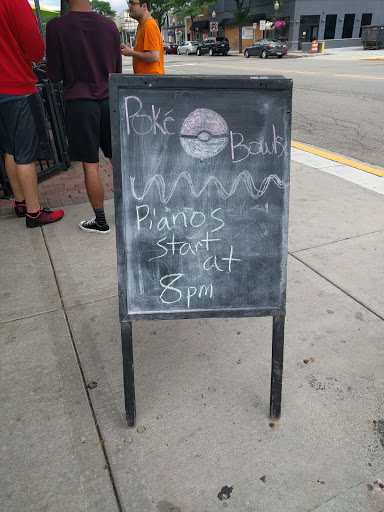 Poké Bowls
Pianos
start
at
8pm